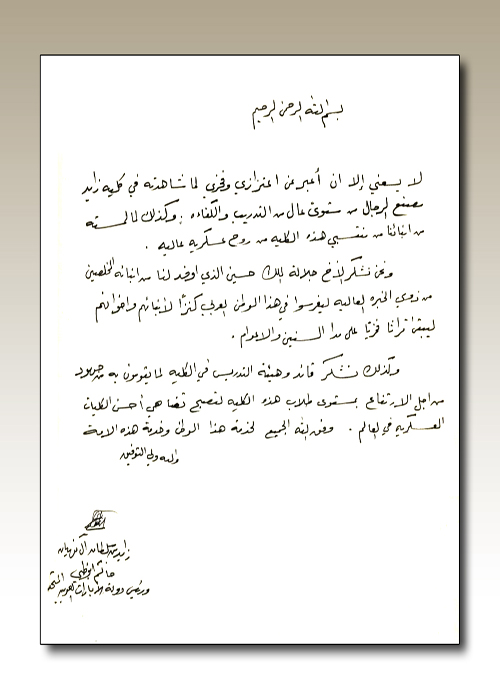 بسم الله الرحمن الرحيم
لا يسعني إلا ان أعبر عن اعتزازي وفخري لما شاهدته في كلية زايد
مصنع الرجال من مستوى عال من التدريب والكفاءه ; وكذلك لما لمسته
من ابنائنا من منتسبي هذه الكليه من روح عسكريه عاليه .
ونحن نشكر لأخ جلالة الملك حسين الذي اوفد لنا من ابنائه المخلصين
من ذوي الخبره العاليه ليغرسوا في هذا الوطن العربي كنزًا لأبنائهم واخوانهم
ليبقى تراثا على مدا السنين والاعوام .
وكذلك نشكر قائد وهيئة التدريس في الكليه لما يقومون به من جهود
من اجل الارتفاع بمستوى طلاب هذه الكليه لتصبح هي أحسن الكليات
العسكريه في العالم . وفق الله الجميع لخدمة هذا الوطن وخدمة هذه الامة
والله ولي التوفيق
زايد بن سلطان آل نهيان
حاكم ابوظبي
ورئيس دولة الامارات العربيه المتحده